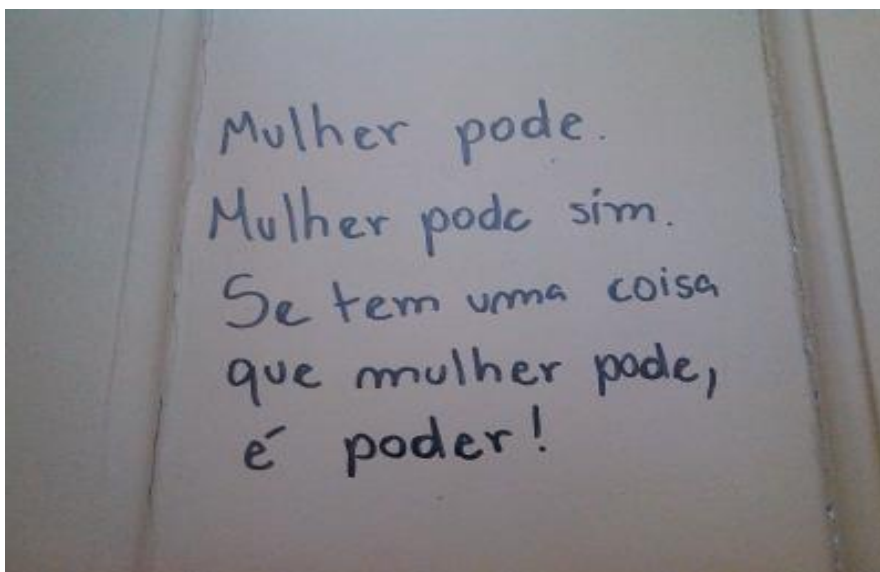 Mulher pode.
Mulher pode sim.
Se tem uma coisa
que mulher pode,
é poder!